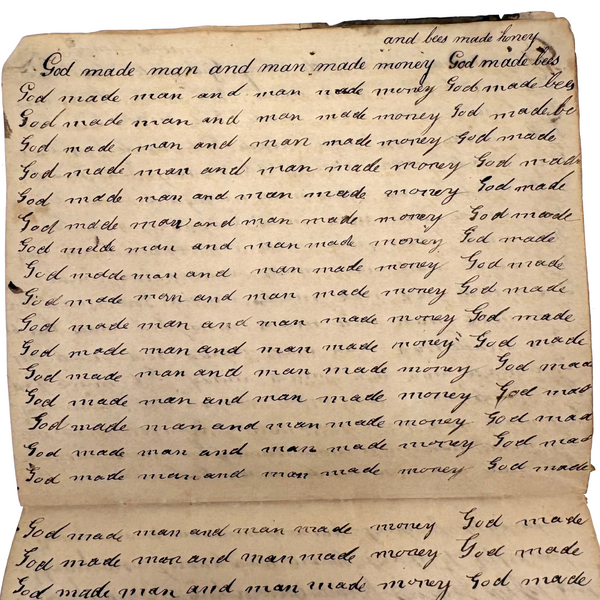 and bees made honey
God made man and man made money God made bees
God made man and man made money God made bees
God made man and man made money God made be
God made man and man made money God made
God made man and man made money God made
God made man and man made money God made
God made man and man made money God made
God made man and man made money God made
God made man and man made money God made
God made man and man made money God made
God made man and man made money God made
God made man and man made money God made
God made man and man made money God made
God made man and man made money God mad
God made man and man made money God mad
God made man and man made money God mad
God made man and man made money God made
God made man and man made money God made
God made man and man made money God made
God made man and man made money God made